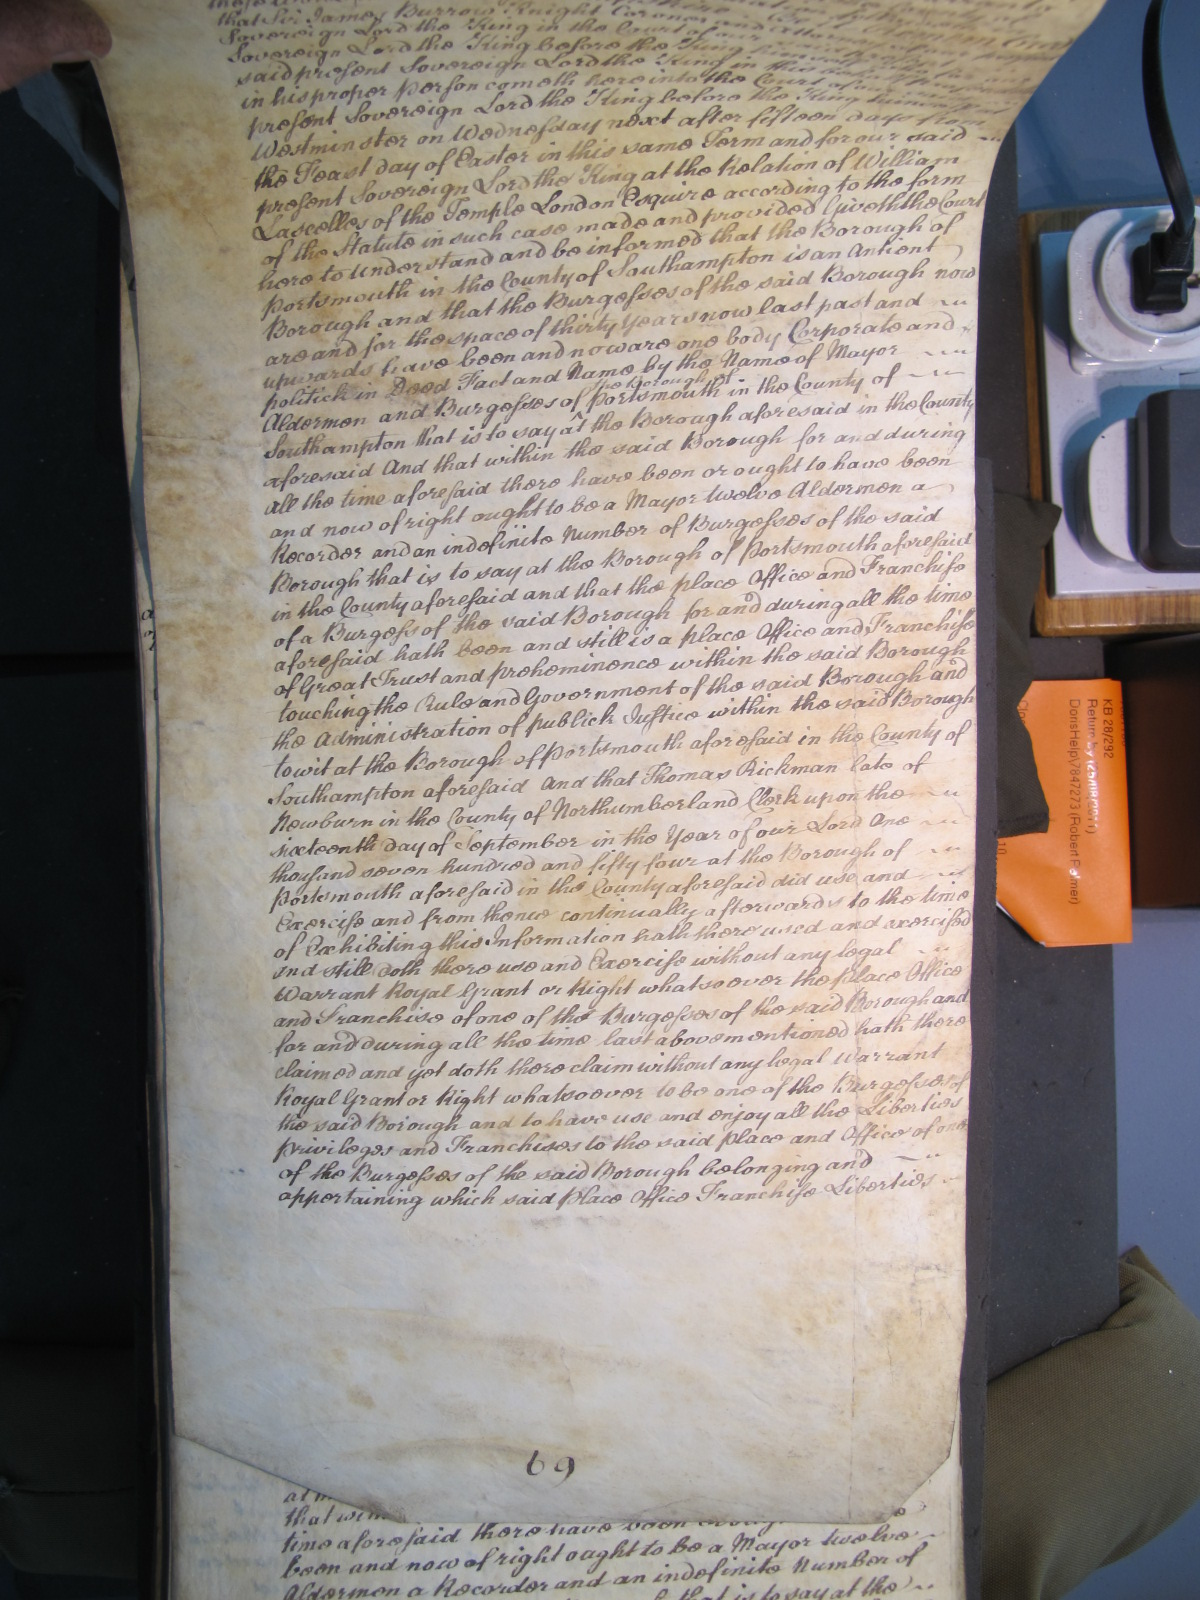 that Sir James Burrow Knight Coroner and Attorney of our
Sovereign Lord the King in the Court of our
Sovereign Lord the King before the King himself
said present Sovereign Lord the King in this
in his proper person cometh here into the Court of our
present Sovereign Lord the King before the King himself
Westminster on Wednesday next after fifteen days from
the Feast day of Easter in this same Term and for our said
present Sovereign Lord the King at the Relation of William
Lascelles of the Temple London Esquire according to the form
of the Statute in such case made and provided Giveth the Court
here to understand and be informed that the Borough of
Portsmouth in the County of Southampton is an Antient
Borough and that the Burgesses of the said Borough now
are and for the space of thirty Years now last past and
upwards have been and now are one body Corporate and
politick in Deed Fact and Name by the Name of Mayor
Aldermen and Burgesses of the Borough of Portsmouth in the County of
Southampton that is to say at the Borough aforesaid in the County
aforesaid And that within the said Borough for and during
all the time aforesaid there have been or ought to have been
and now of right ought to be a Mayor twelve Aldermen a
Recorder and an indefinite Number of Burgesses of the said
Borough that is to say at the Borough of Portsmouth aforesaid
in the County aforesaid and that the place Office and Franchise
of a Burgess of the said Borough for and during all the time
aforesaid hath been and still is a place Office and Franchise
of Great Trust and preheminence within the said Borough
touching the Rule and Government of the said Borough and
the Administration of publick Justice within the said Borough
to wit at the Borough of Portsmouth aforesaid in the County of
Southampton aforesaid And that Thomas Rickman late of
Newburn in the County of Northumberland Clerk upon the
sixteenth day of September in the Year of our Lord One
thousand seven hundred and fifty four at the Borough of
Portsmouth aforesaid in the County aforesaid did use and
Exercise and from thence continually afterwards to the time
of Exhibiting this Information hath there used and exercised
and still doth there use and Exercise without any legal
Warrant Royal Grant or Right whatsoever the place Office
and Franchise of one of the Burgesses of the said Borough and
for and during all the time last abovementioned hath there
claimed and yet doth there claim without any legal Warrant
Royal Grant or Right whatsoever to be one of the Burgesses of
the said Borough and to have use and enjoy all the Liberties
privileges and Franchises to the said place and Office of one
of the Burgesses of the said Borough belonging and
appertaining which said place Office Franchise Liberties
69
that
time aforesaid there have been
been and now of right ought to be a Mayor twelve
Aldermen a Recorder and an indefinite Number of
that is to say at the
KB 28/292
Return by (25/08/2011)
DorisHelp\7847273 (Robert Palmer)